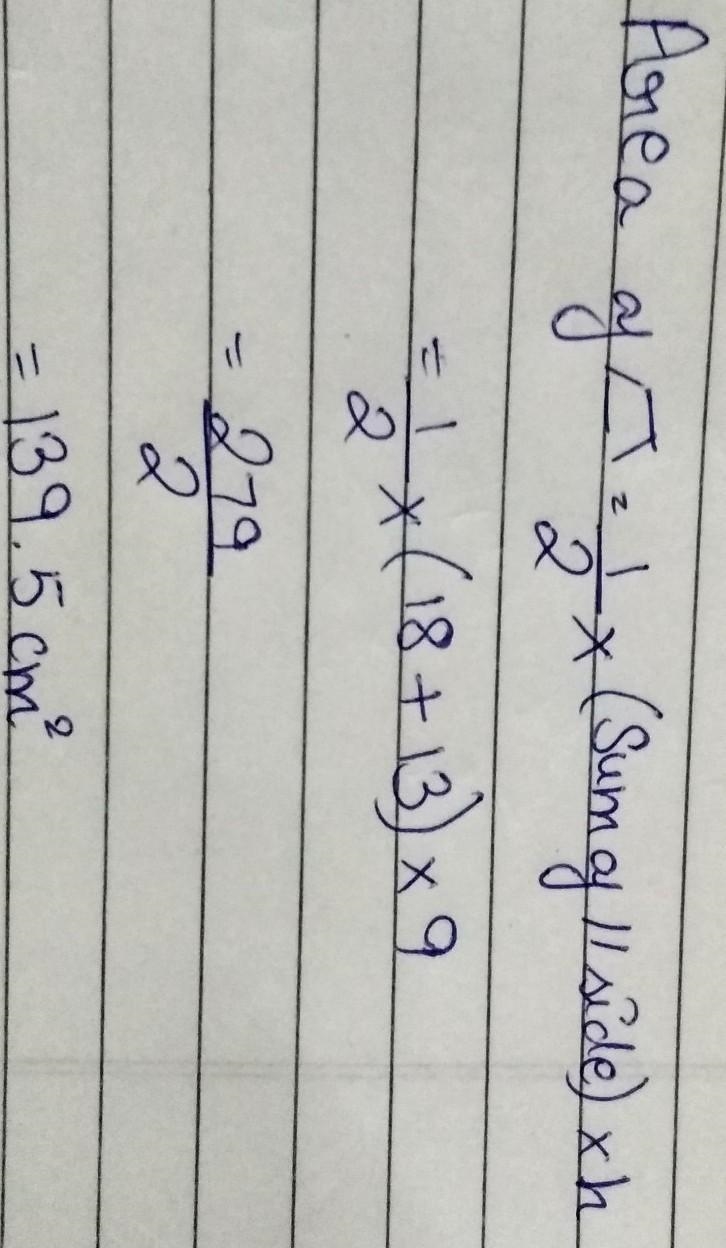 Area of ⏢ = 1/2 × (Sum of || side) × h
= 1/2 × (18 + 13) × 9
= 279/2
= 139.5 cm²